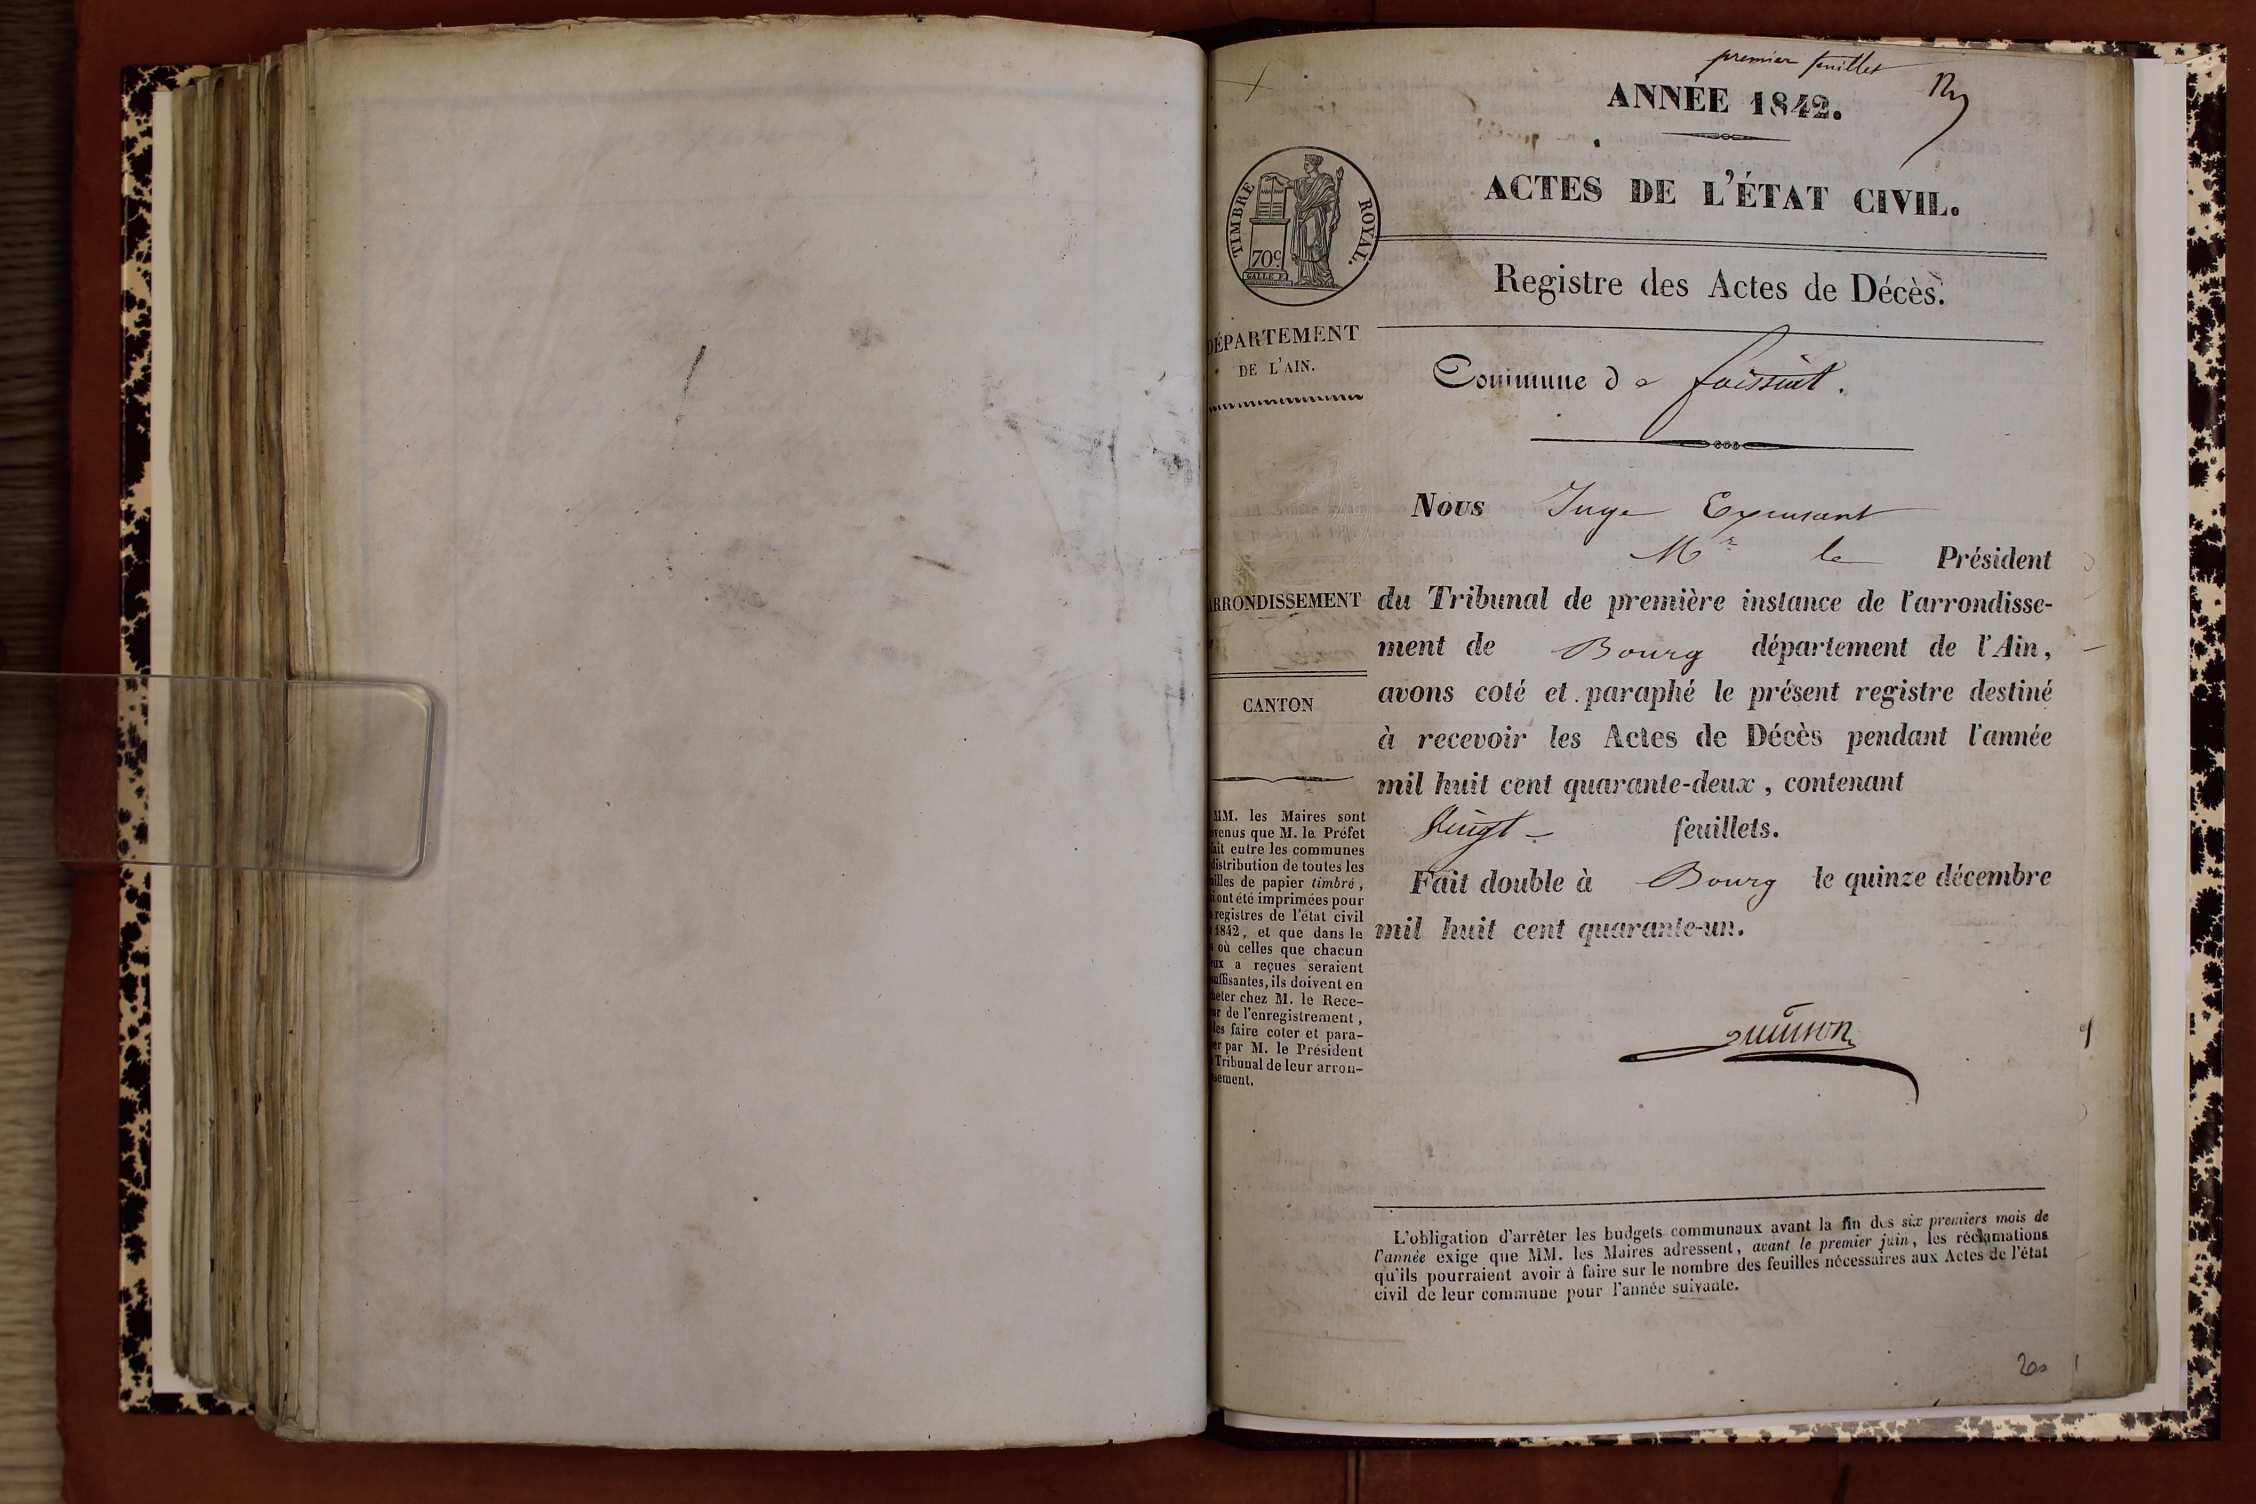 premier feuillet
ANNÉE 1842.
ACTES DE L'ÉTAT CIVIL.
TIMBRE ROYAL.
70c
Registre des Actes de Décès.
DÉPARTEMENT
DE L'AIN.
Commune de foissiat.
Nous Juge Excusant
Mr le Président
ARRONDISSEMENT
du Tribunal de première instance de l'arrondisse-
ment de Bourg département de l'Ain,
avons coté et paraphé le présent registre destiné
à recevoir les Actes de Décès pendant l'année
mil huit cent quarante-deux, contenant
Vingt feuillets.
Fait double à Bourg le quinze décembre
mil huit cent quarante-un.
CANTON
MM. les Maires sont
venus que M. le Préfet
fait entre les communes
distribution de toutes les
illes de papier timbré,
i ont été imprimées pour
registres de l'état civil
1842, et que dans le
où celles que chacun
eux a reçues seraient
suffisantes, ils doivent en
heter chez M. le Rece-
ur de l'enregistrement,
les faire coter et para-
er par M. le Président
Tribunal de leur arron-
sement.
L'obligation d'arrêter les budgets communaux avant la fin des six premiers mois de
l'année exige que MM. les Maires adressent, avant le premier juin, les réclamations
qu'ils pourraient avoir à faire sur le nombre des feuilles nécessaires aux Actes de l'état
civil de leur commune pour l'année suivante.